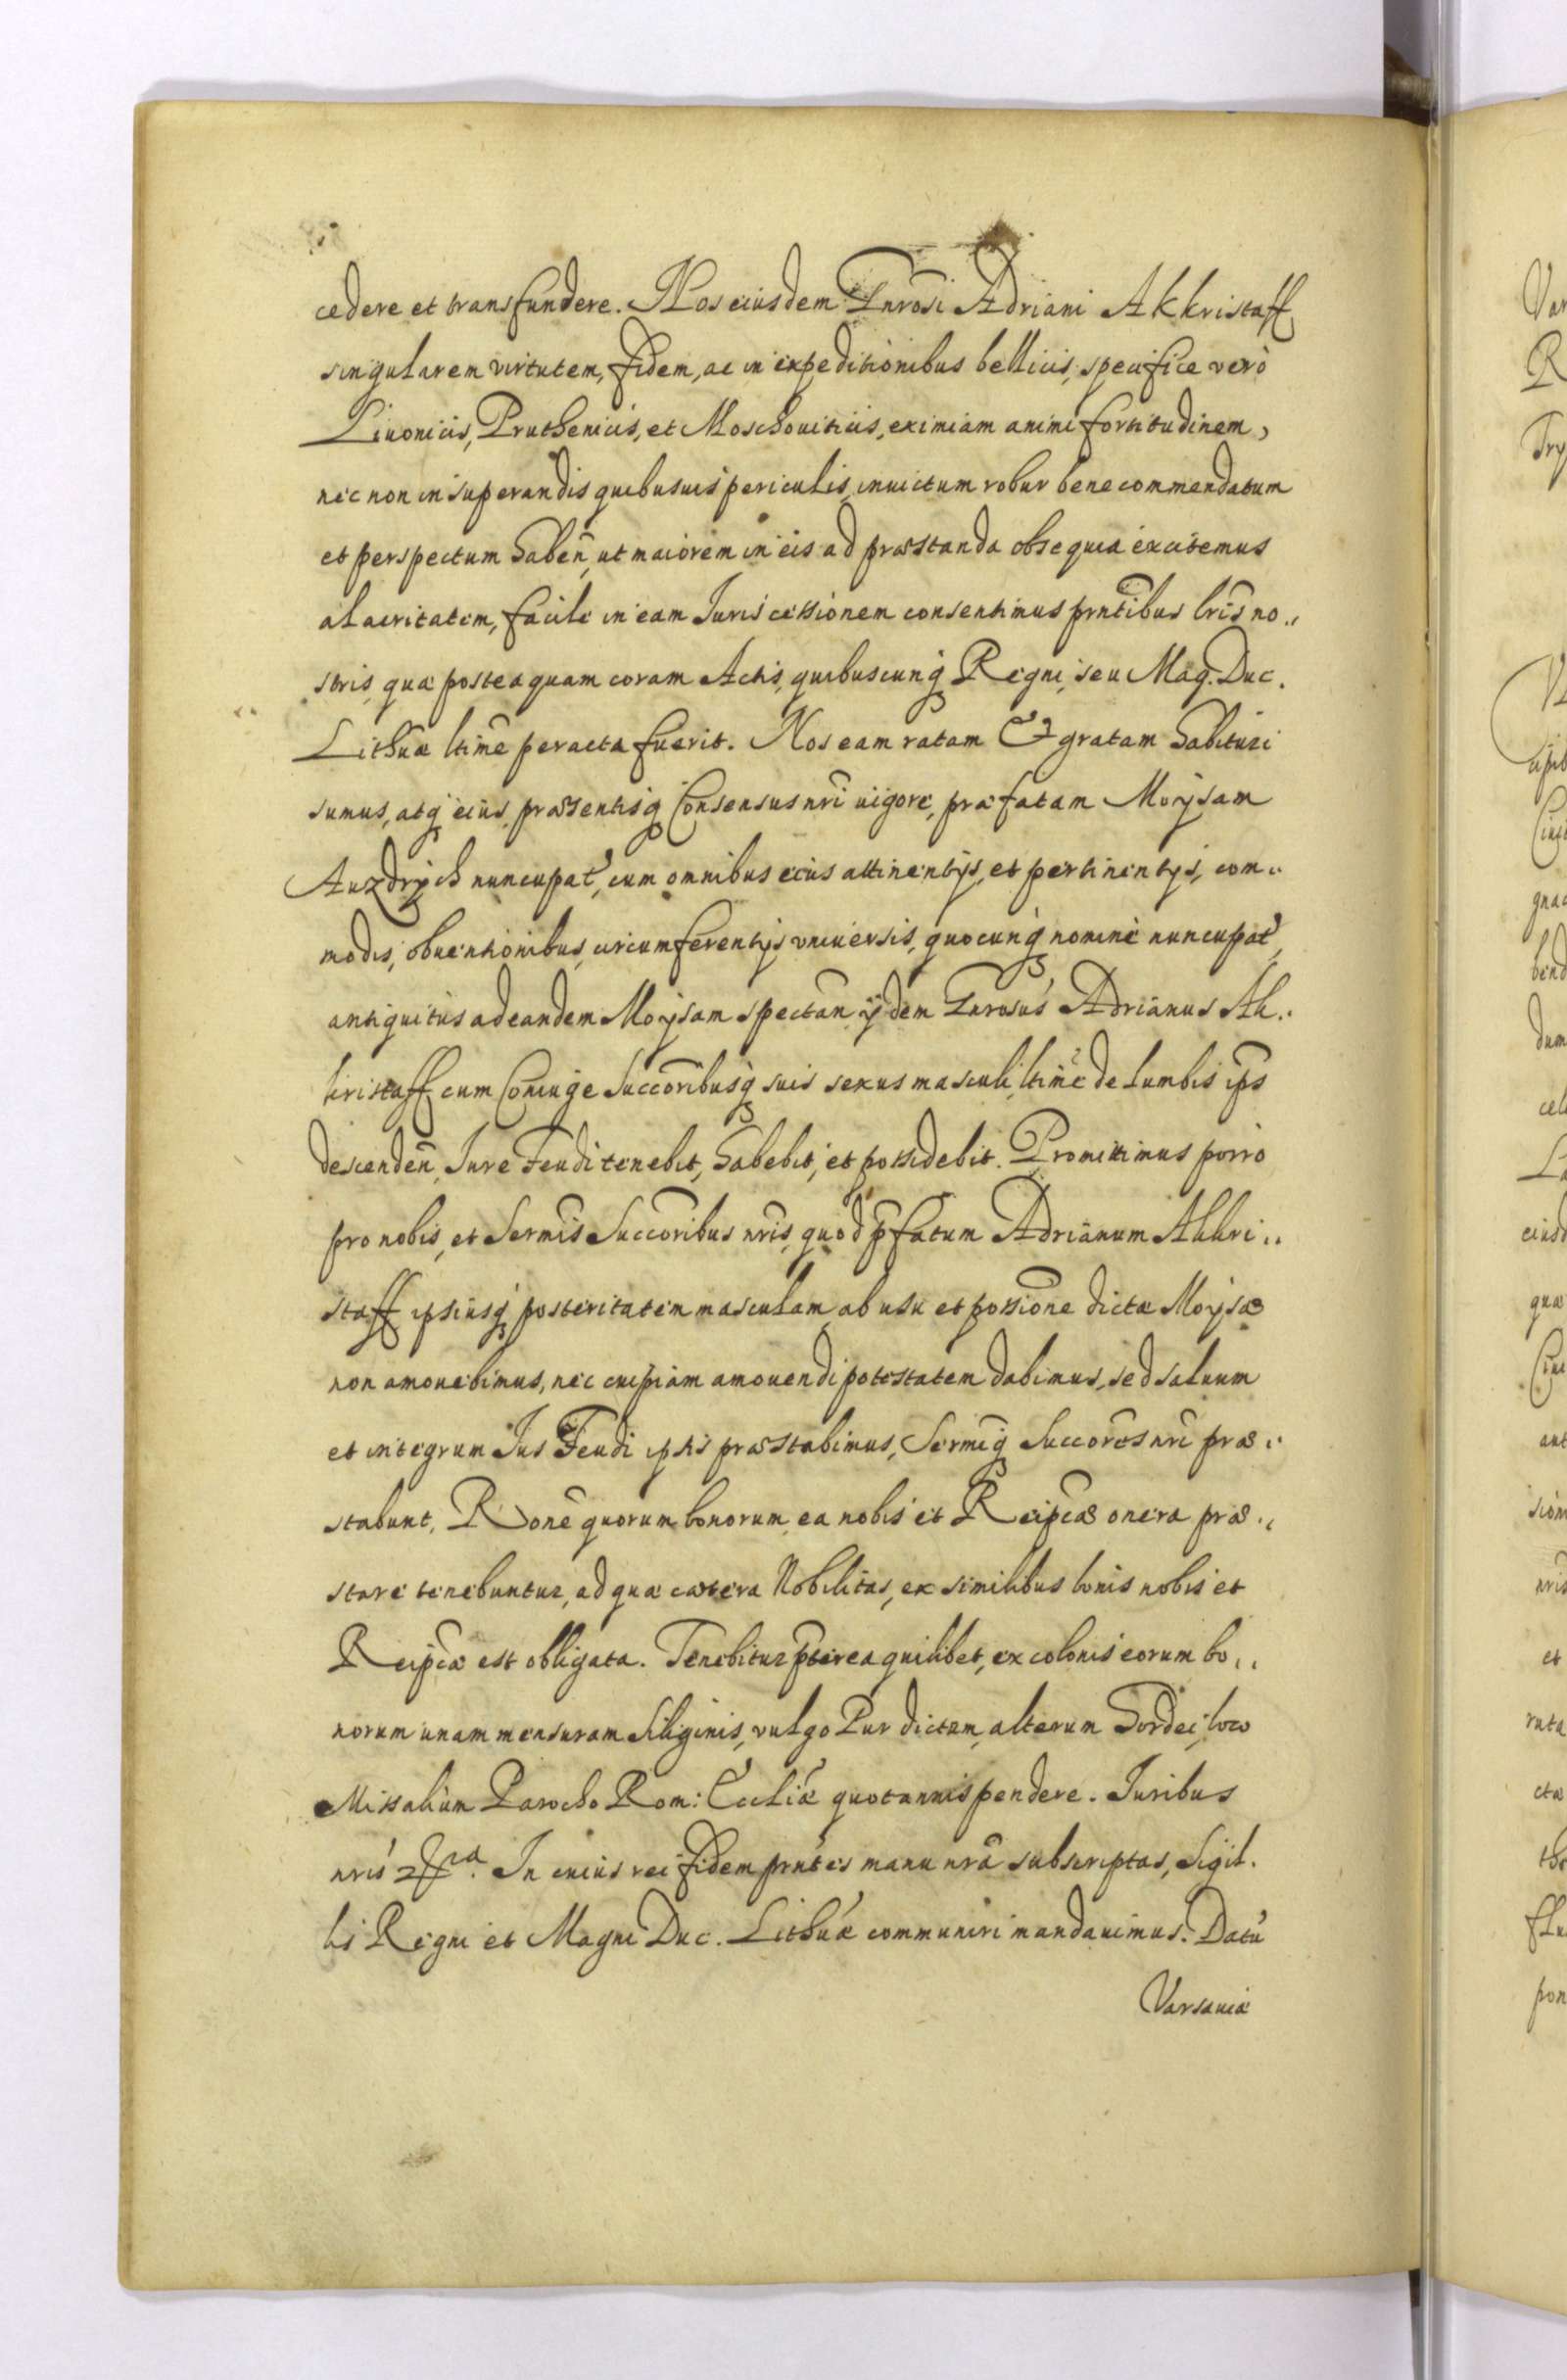 cedere et transfundere. Nos eiusdem Gnrosi Adriani Akkristaff
singularem virtutem, fidem, ac in expeditionibus bellicis, specifice verò
Liuonicis, Pruthenicis, et Moschouiticis, eximiam animi fortitudinem,
nec non in superandis quibusuis periculis, inuictum robur bene commendatum
et perspectum haben̄, ut maiorem in eis ad præstanda obsequia excitemus
alacritatem, facile in eam Juris cessionem consentimus prntibus lris no„
stris, quæ posteaquam coram Actis, quibuscunq Regni, seu Mag. Duc.
Lithuæ ltime peracta fuerit. Nos eam ratam & gratam habituri
sumus, atq eius, præsentisq Consensus nri uigore, præfatam Moysam
Auzdrych nuncupat, cum omnibus eius attinentijs, et pertinentijs, com„
modis, obuentionibus, circumferentijs vniuersis, quocunq nomine nuncupat,
antiquitùs ad eandem Moysam spectan̄ ijdem Gnrosus Adrianus Ak„
kristaff cum Coniuge Succoribusq suis sexus masculi, ltime de lumbis ips
descenden̄, Jure Feudi tenebit, habebit, et possidebit. Promittimus porrò
pro nobis, et Sermis Succoribus nris, quod pfatum Adrianum Akkri„
staff ipsiusq posteritatem masculam, ab usu et possione dictæ Moysæ
non amouebimus, nec cuipiam amouendi potestatem dabimus, sed saluum
et integrum Jus Feudi ipsis præstabimus, Sermiq Succores nri præ„
stabunt, Rone quorum bonorum, ea nobis et Reipcæ onera præ„
stare tenebuntur, ad quæ cætera Nobilitas, ex similibus bonis nobis et
Reipcæ est obligata. Tenebitur pterea quilibet, ex colonis eorum bo„
norum unam mensuram Siliginis, vulgo Pur dictam, alteram hordei, loco
Missalium Parocho Rom: Eccliæ quotannis pendere. Juribus
nris In cuius rei fidem prntes manu nra subscriptas, Sigil.
lis Regni et Magni Duc. Lithuæ communiri mandauimus. Datū
Varsauiæ